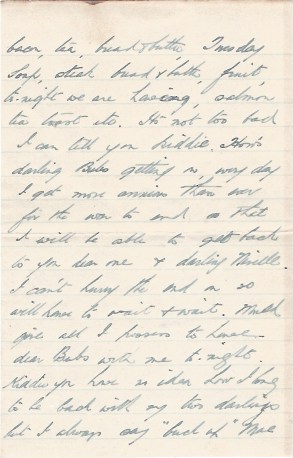 bacon, tea, bread & butter, Tuesday
Soup, steak bread & butter, fruit,
to-night we are having, salmon
tea toast etc. It's not too bad
I can tell you kiddie. How's
darling Bubs getting on, every day
I get more anxious than ever
for the war to end so that
I will be able to get back
to you dear one & darling
I can't hurry the end on so
will have to wait & wait. Would
give all I possess to have
dear Bubs with me to-night.
Kiddie you have no idea how I long
to be back with my two darlings
but I always say "buck up" Mac